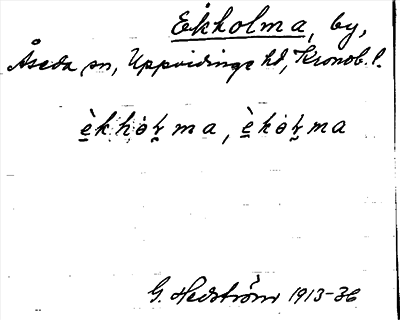 Ekholma, by,
Åseda sn, Uppvidinge hd, Kronob. l.
è̠khȯl̠ma, è̠kȯl̠ma
G. Hedström 1913-36